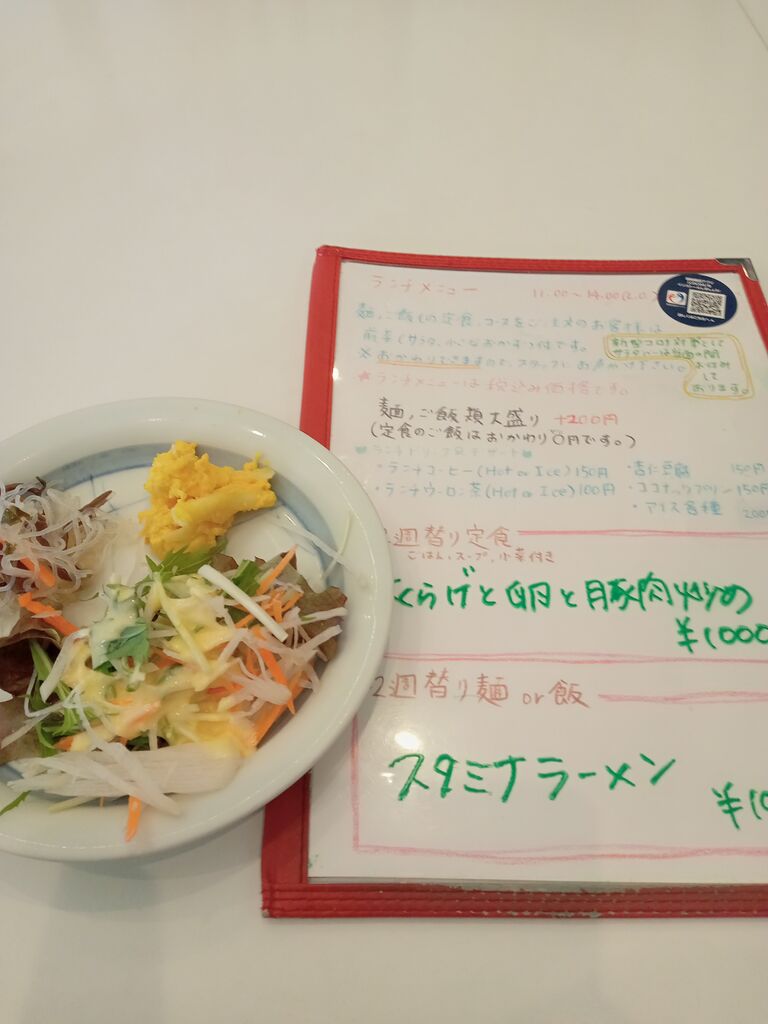 ランチメニュー 11:00〜14:00(L.O.)
麺、ご飯、の定食、コースをご注文のお客様は
前菜(サラダ、小さなおかず)付です。
新型コロナ対策として
サラダバーは当面の間
お休み
して
おります。
※おかわりできますので、スタッフにお声かけ下さい。
ランチメニューは税込み価格です。
麺、ご飯類大盛り +200円
(定食のご飯はおかわり0円です。)
ランチドリンク&デザート
・ランチコーヒー(Hot or Ice)150円 ・杏仁豆腐 150円
・ランチウーロン茶(Hot or Ice)100円 ・ココナッツプリン 150円
・アイス各種 200
週替り定食
ごはん、スープ、小菜付き
くらげと卵と豚肉炒め
¥1000
2週替り麺 or 飯
スタミナラーメン
¥10